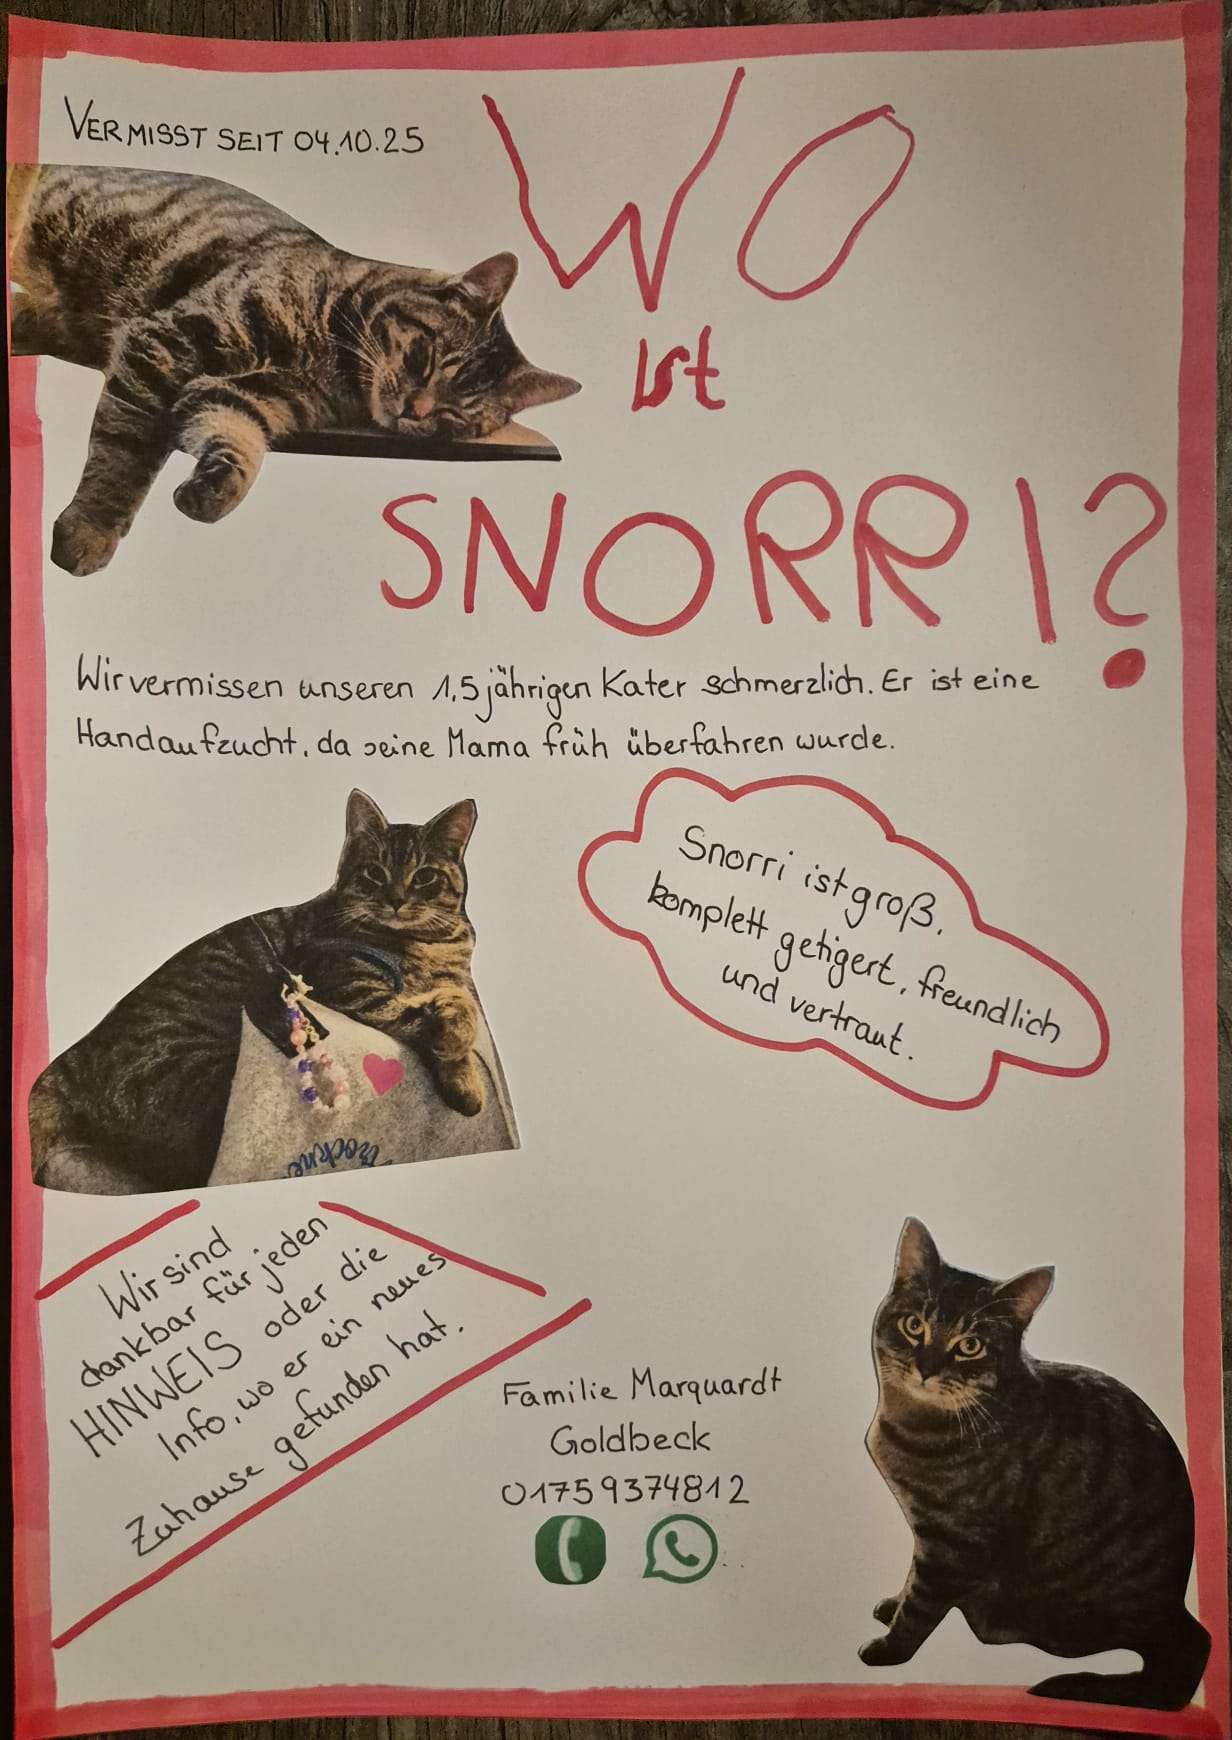 VERMISST SEIT 04.10.25
WO
ist
SNORRI?
Wir vermissen unseren 1,5 jährigen Kater schmerzlich. Er ist eine
Handaufzucht, da seine Mama früh überfahren wurde.
Snorri ist groß,
komplett getigert, freundlich
und vertraut.
Wir sind
dankbar für jeden
HINWEIS oder die
Info, wo er ein neues
Zuhause gefunden hat.
Familie Marquardt
Goldbeck
01759374812